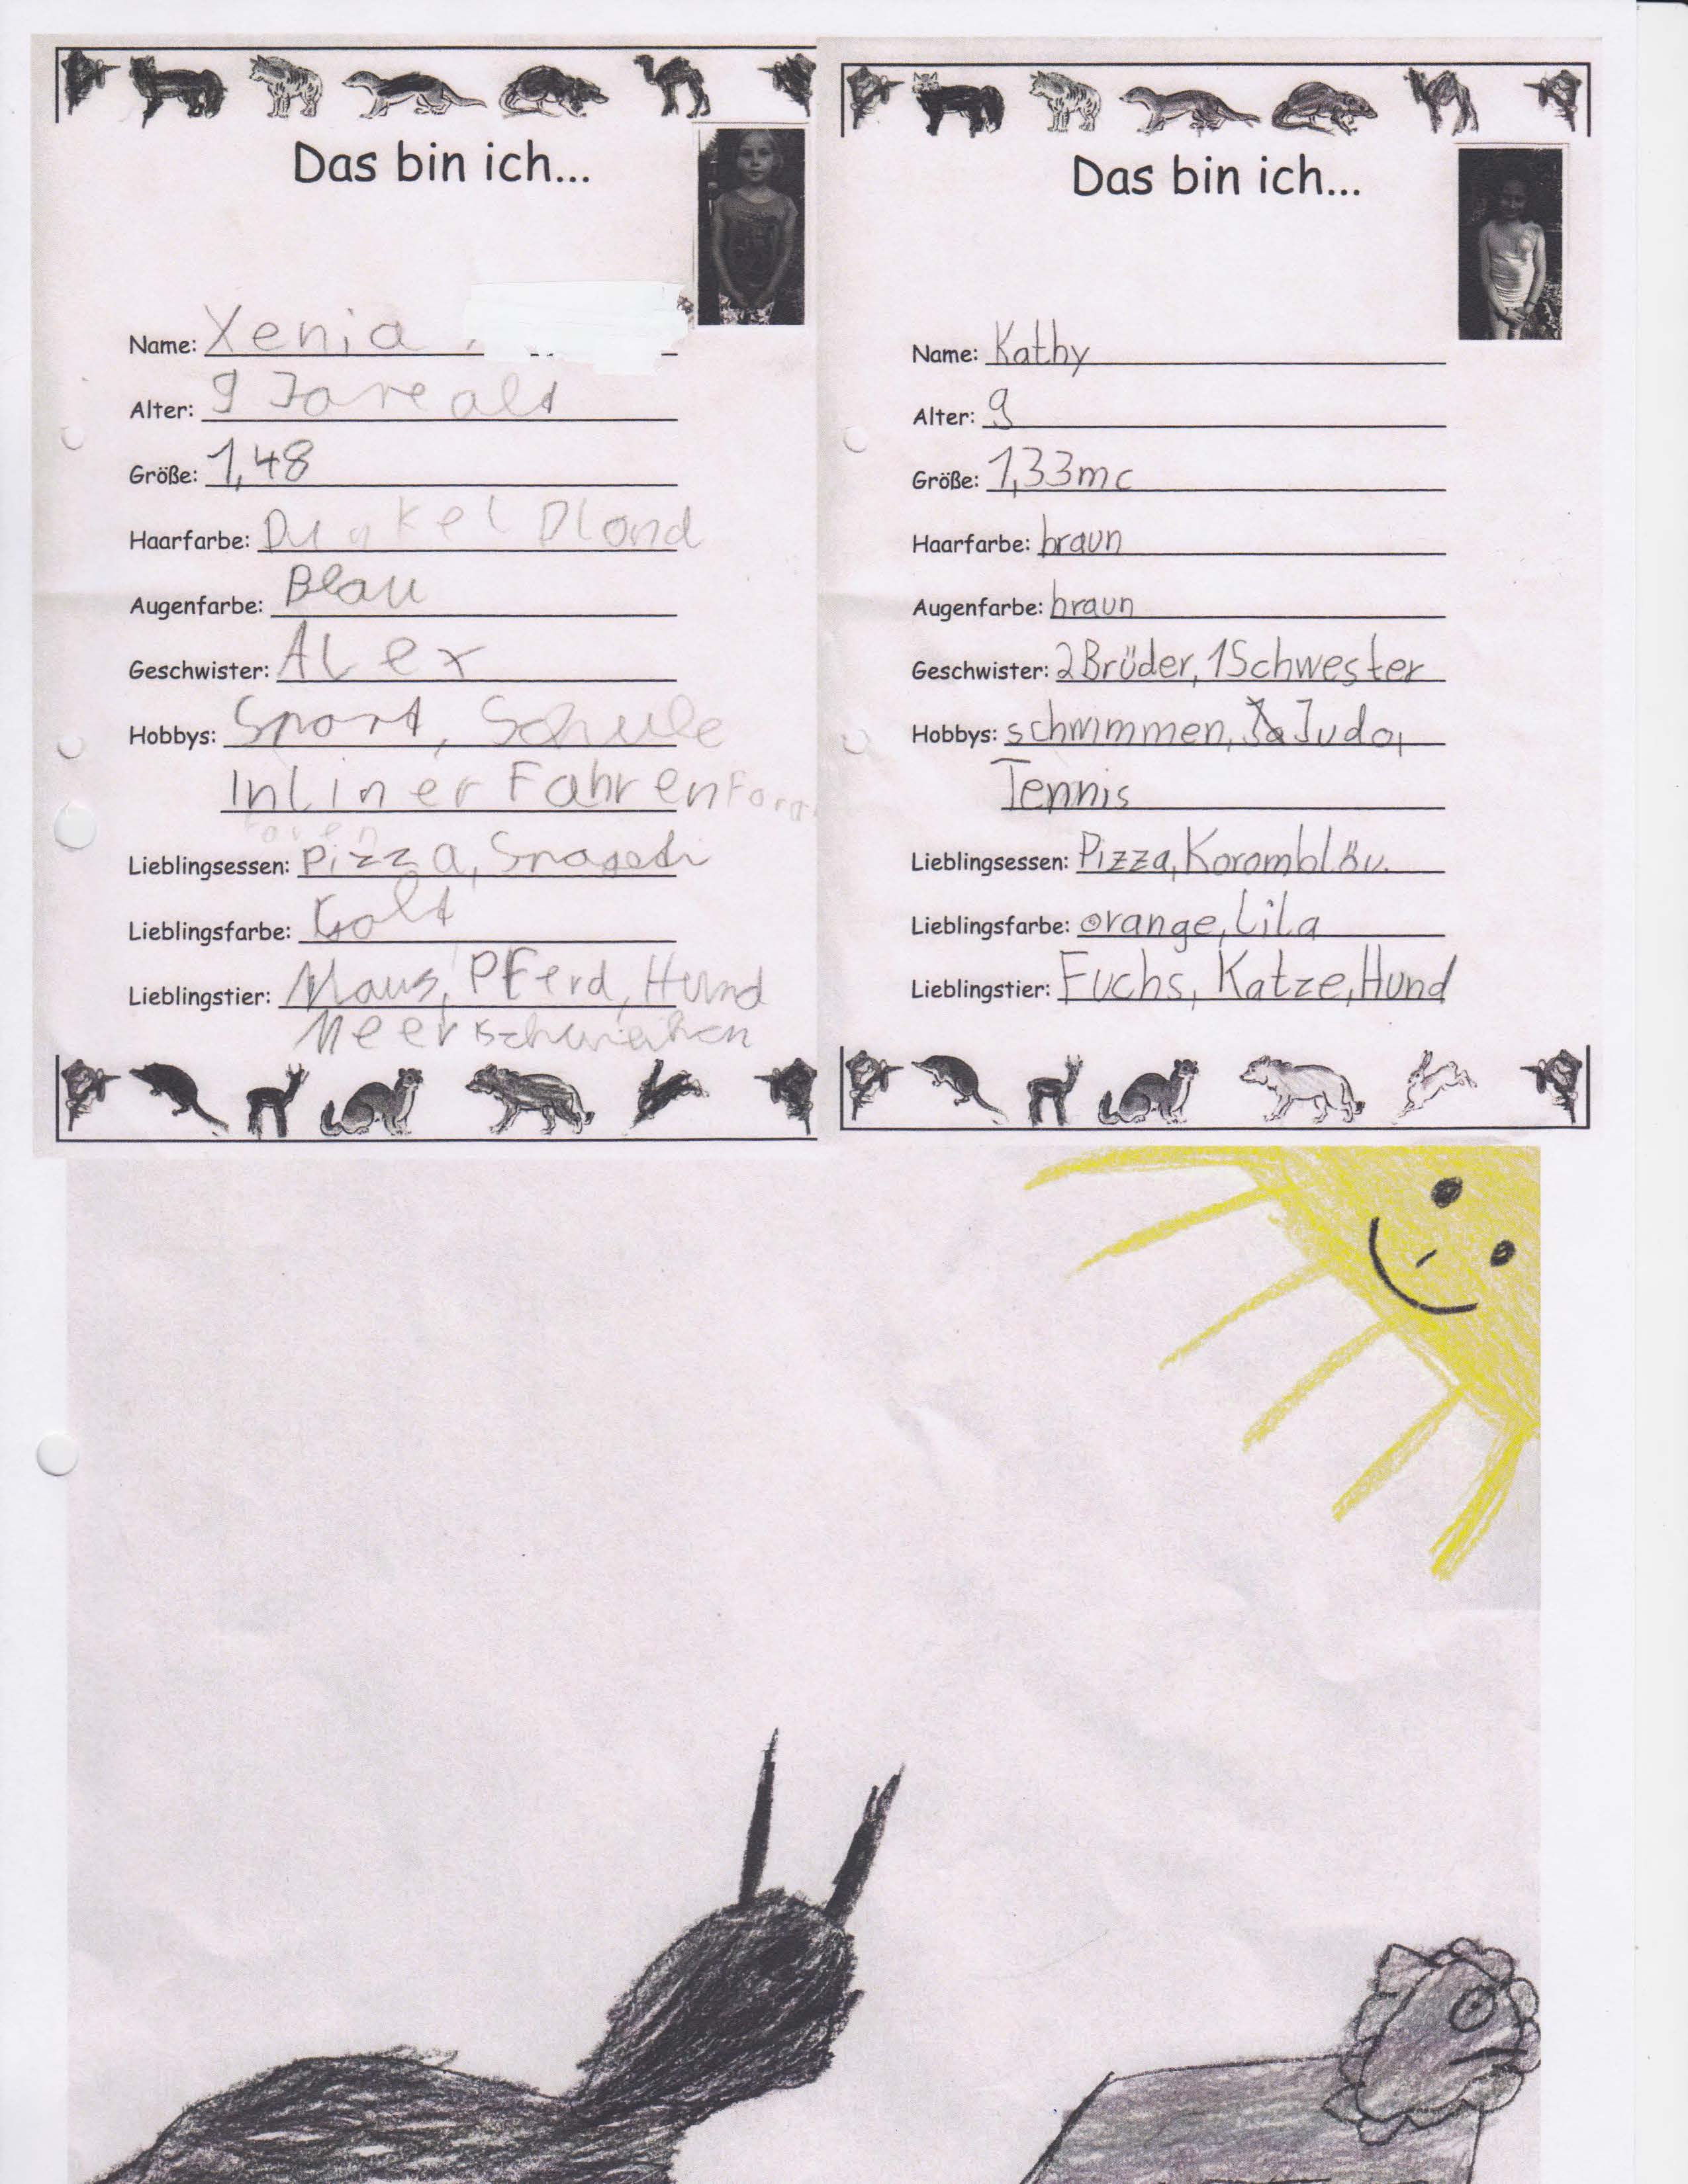 Das bin ich...
Name: Xenia
Alter: 9 Jare alt
Größe: 1,48
Haarfarbe: Dunkel Blond
Augenfarbe: Blau
Geschwister: Alex
Hobbys: Sport, Schule
Inliner Fahren
Lieblingsessen: Pizza, Spageti
Lieblingsfarbe: Gold
Lieblingstier: Maus, Pferd, Hund
Meerschweinchen
Das bin ich...
Name: Kathy
Alter: 9
Größe: 1,33mc
Haarfarbe: braun
Augenfarbe: braun
Geschwister: 2 Brüder, 1 Schwester
Hobbys: schwimmen, Judo,
Tennis
Lieblingsessen: Pizza,
Lieblingsfarbe: orange, Lila
Lieblingstier: Fuchs, Katze, Hund